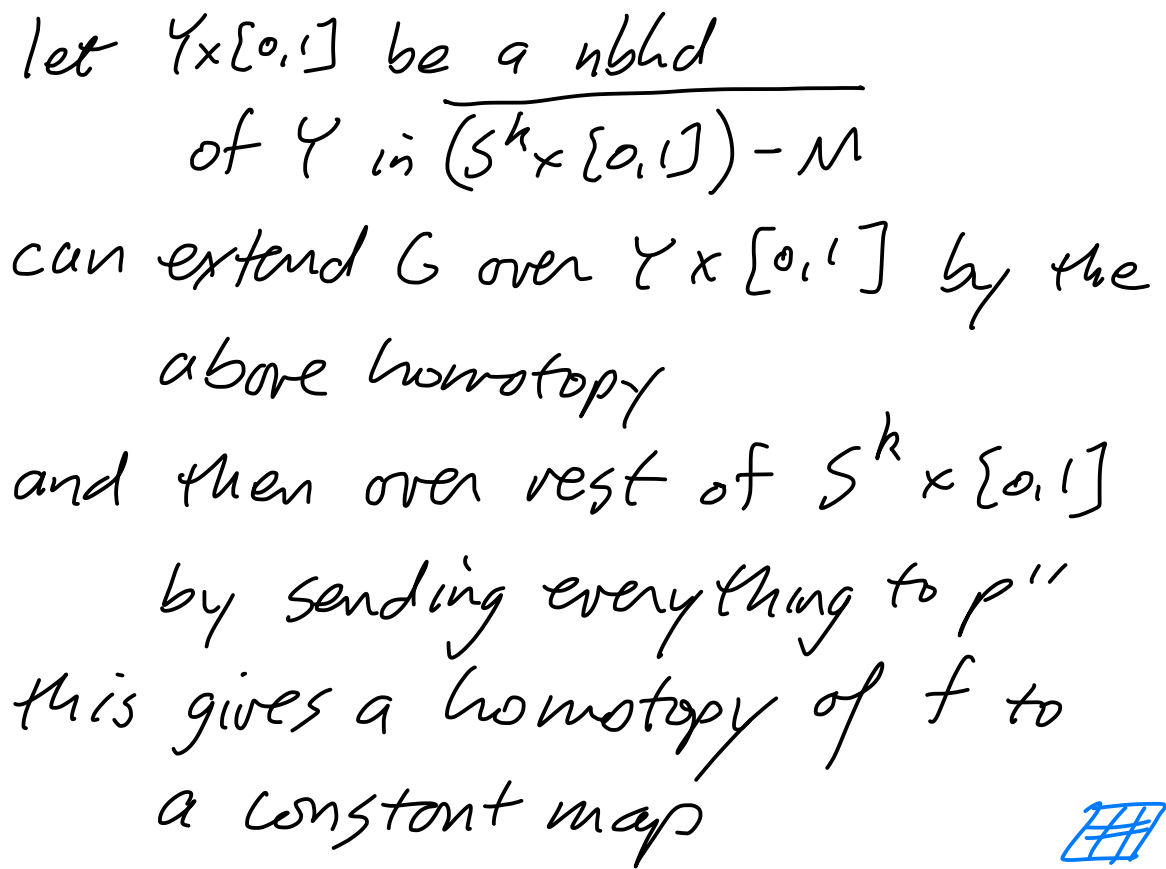 let Y×[0,1] be a nbhd
of Y in \overline{(S^k×[0,1])-M}
can extend G over Y×[0,1] by the
above homotopy
and then over rest of S^k×[0,1]
by sending everything to p''
this gives a homotopy of f to
a constant map